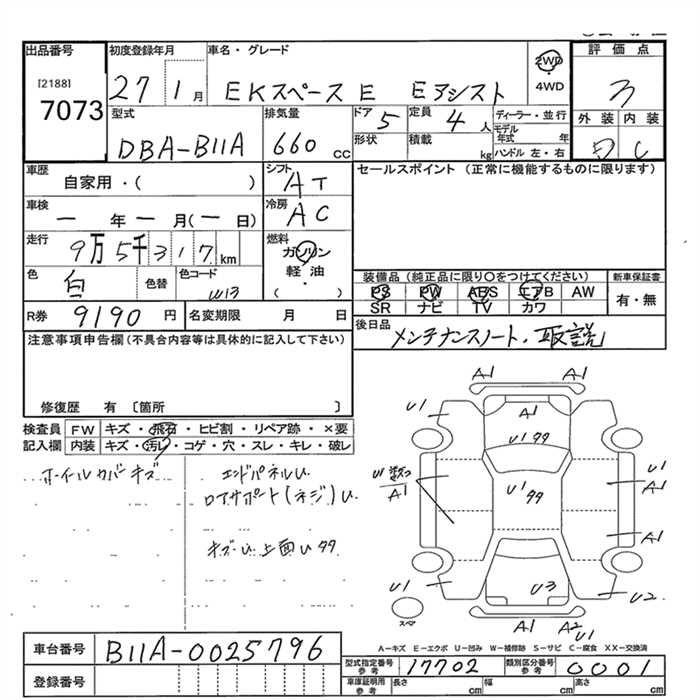 出品番号 初度登録年月 車名・グレード 評価点
[2188]
7073
27 1月 EKスペース E Eアシスト 2WD 3
・
4WD
外装 内装
型式 排気量 ドア 5 定員 4人 ディーラー・並行
DBA-B11A 660cc 形状 積載 kg モデル年式 年
ハンドル 左・右 C
車歴 自家用・( ) シフト AT セールスポイント (正常に機能するものに限ります)
車検 ー年ー月(ー日) 冷房 AC
走行 9万5千317km 燃料 ガソリン
軽油
・
( )
色 白 色替 色コード W13
装備品(純正品に限り〇をつけてください) 新車保証書
PS PW ABS エアB AW 有・無
SR ナビ TV カワ
R券 9190円 名変期限 月 日 後日品 メンテナンスノート、取説
注意事項申告欄(不具合内容等は具体的に記入して下さい)
修復歴 有〔箇所 〕
検査員 FW キズ・飛石・ヒビ割・リペア跡・×要
記入欄 内装 キズ・汚レ・コゲ・穴・スレ・キレ・破レ
ホイールカバーキズ エンドパネルU
ロアサポート(ネジ)U
キズU 上面U99
A1
U1 A1 A1
U1 99
U1 A1
A1 U1 99
A1
U1 U3 U2
スペア A1 A2 U1
A-キズ E-エクボ U-凹み W-補修跡 S-サビ C-腐食 XX-交換済
車台番号 B11A-0025796
型式指定番号 参考 17702 類別区分番号 参考 0001
登録番号 車庫証明用 参考 長さ cm 幅 cm 高さ cm